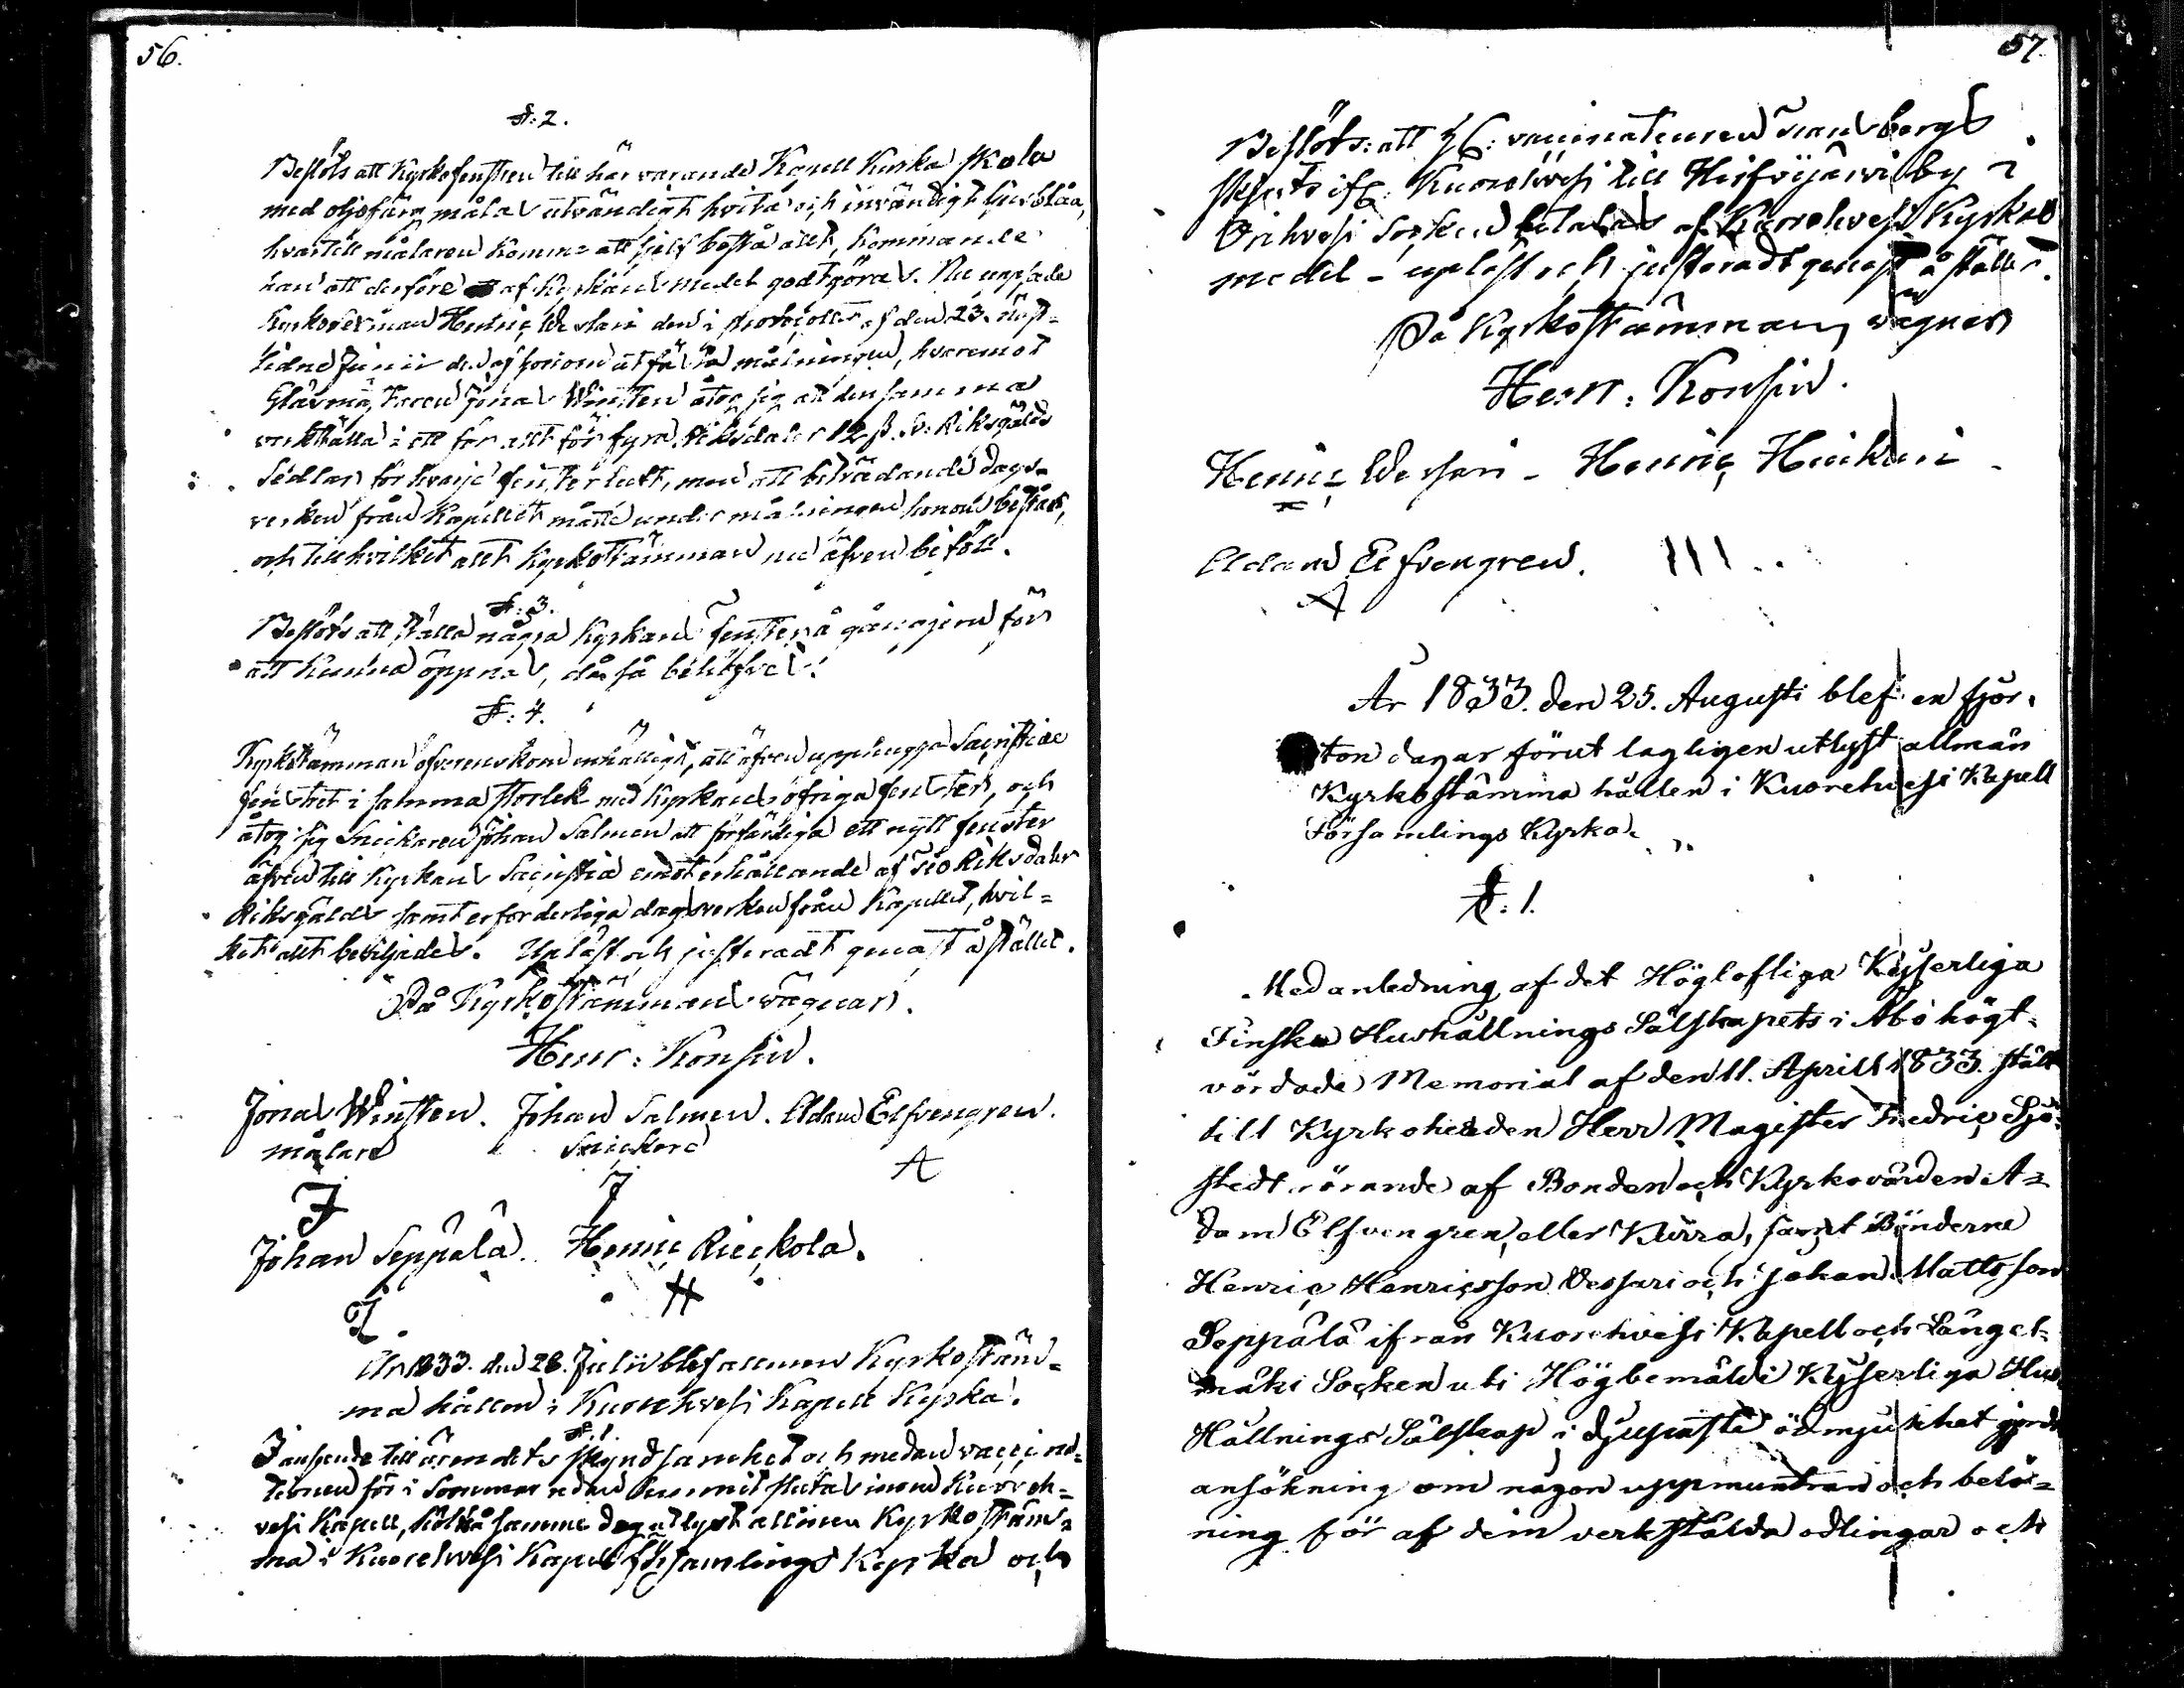 56.
§: 2.
Beslöts att Kyrkofenstren till härvarande Kapell Kyrka skola
med oljefärg målas utvändigt hvita och invändigt ljusblåa,
hvartill målaren komme att sjelf bestå allt, kommande
han att derföre af Kyrkans medel godtgöras. Nu uppsade
Kyrkovärdnan Henric Wessari den i protocollet af den 23. näst-
lidne Junii
målningen, hvaremot
Glasmästaren Jonas Winsten åtog sig att densamma
verkställa i ett för allt för fyra Riksdaler 12 ß. Sv: Riksgälds
Sedlar för hvarje fensterluft, men att biträdande dags-
verken från Kapellet måste under målningen honom bestås,
och till hvilket allt Kyrkostämman nu äfven biföll.
§: 3.
Beslöts att ställa några Kyrkans fenster å gångjern för
att kunna öppnas, då så behöfves.
§: 4.
Kyrkstämman öfverenskom enhälligt, att äfven upphugga Sacristiae
fenstret i samma storlek med Kyrkans öfriga fenster, och
åtog sig Snickaren Johan Salmen att förfärdiga ett nytt fenster
äfven till Kyrkans Sacristia emot erhållande af Tio Riksdaler
Riksgälds samt erforderliga dagsverken från Kapellet, hvil-
ket allt beviljades. Upläst och justeradt genast å stället.
På Kyrkostämmans vägnar.
Henr: Konsin.
Jonas Winsten. Johan Salmen. Adam Elfvengren.
målare Snickare A
J J
Johan Seppälä. Henric Rieckola.
I H
År 1833. den 28. Julii blef allmän Kyrkostäm-
ma hållen i Kuorehvesi Kapell Kyrka.
§. 1.
I anseende till ärendets skyndsamhet och medan vaccina-
tionen för i Sommar redan hunnit slutas inom Kuoreh-
vesi Kapell, hölls samme dag utlyst allmän Kyrkostäm-
ma i Kuorehvesi Kapell församlings Kyrka och
57.
Beslöts: att H: vaccinateuren Tranbergs
skjuts ifr: Kuorehvesi till Hirsvijärvi by i
Orihvesi Socken betalas af Kuorehvesi Kyrkas
medel - upläst och justeradt genast å stället.
På Kyrkostämmans vägnar
Henr: Konsin.
Henric Wessari - Henric Heickari -
Adam Elfvengren. III
A
År 1833. den 25. Augusti blef en fjor-
ton dagar förut lagligen utlyst allmän
Kyrkostämma hållen i Kuorehvesi Kapell
Församlings Kyrka.
§: 1.
Med anledning af det Höglofliga Kejserliga
Finska Hushållnings Sälskapets i Åbo högt-
vördade Memorial af den 11. Aprill 1833. stält
till Kyrkoherden Herr Magister Fredric Sjö-
stedt rörande af Bonden och Kyrkovärden A-
dam Elfvengren, eller Kurra, samt Bönderne
Henric Henricsson Wessari och Johan Mattsson
Seppälä ifrån Kuorehvesi Kapell och Längel-
mäki Socken uti Högbemälde Kejserliga Hus-
Hållnings Sälskap i djupaste ödmjukhet gjord
ansökning om någon uppmuntran och belö-
ning för af dem verkstälda odlingar och